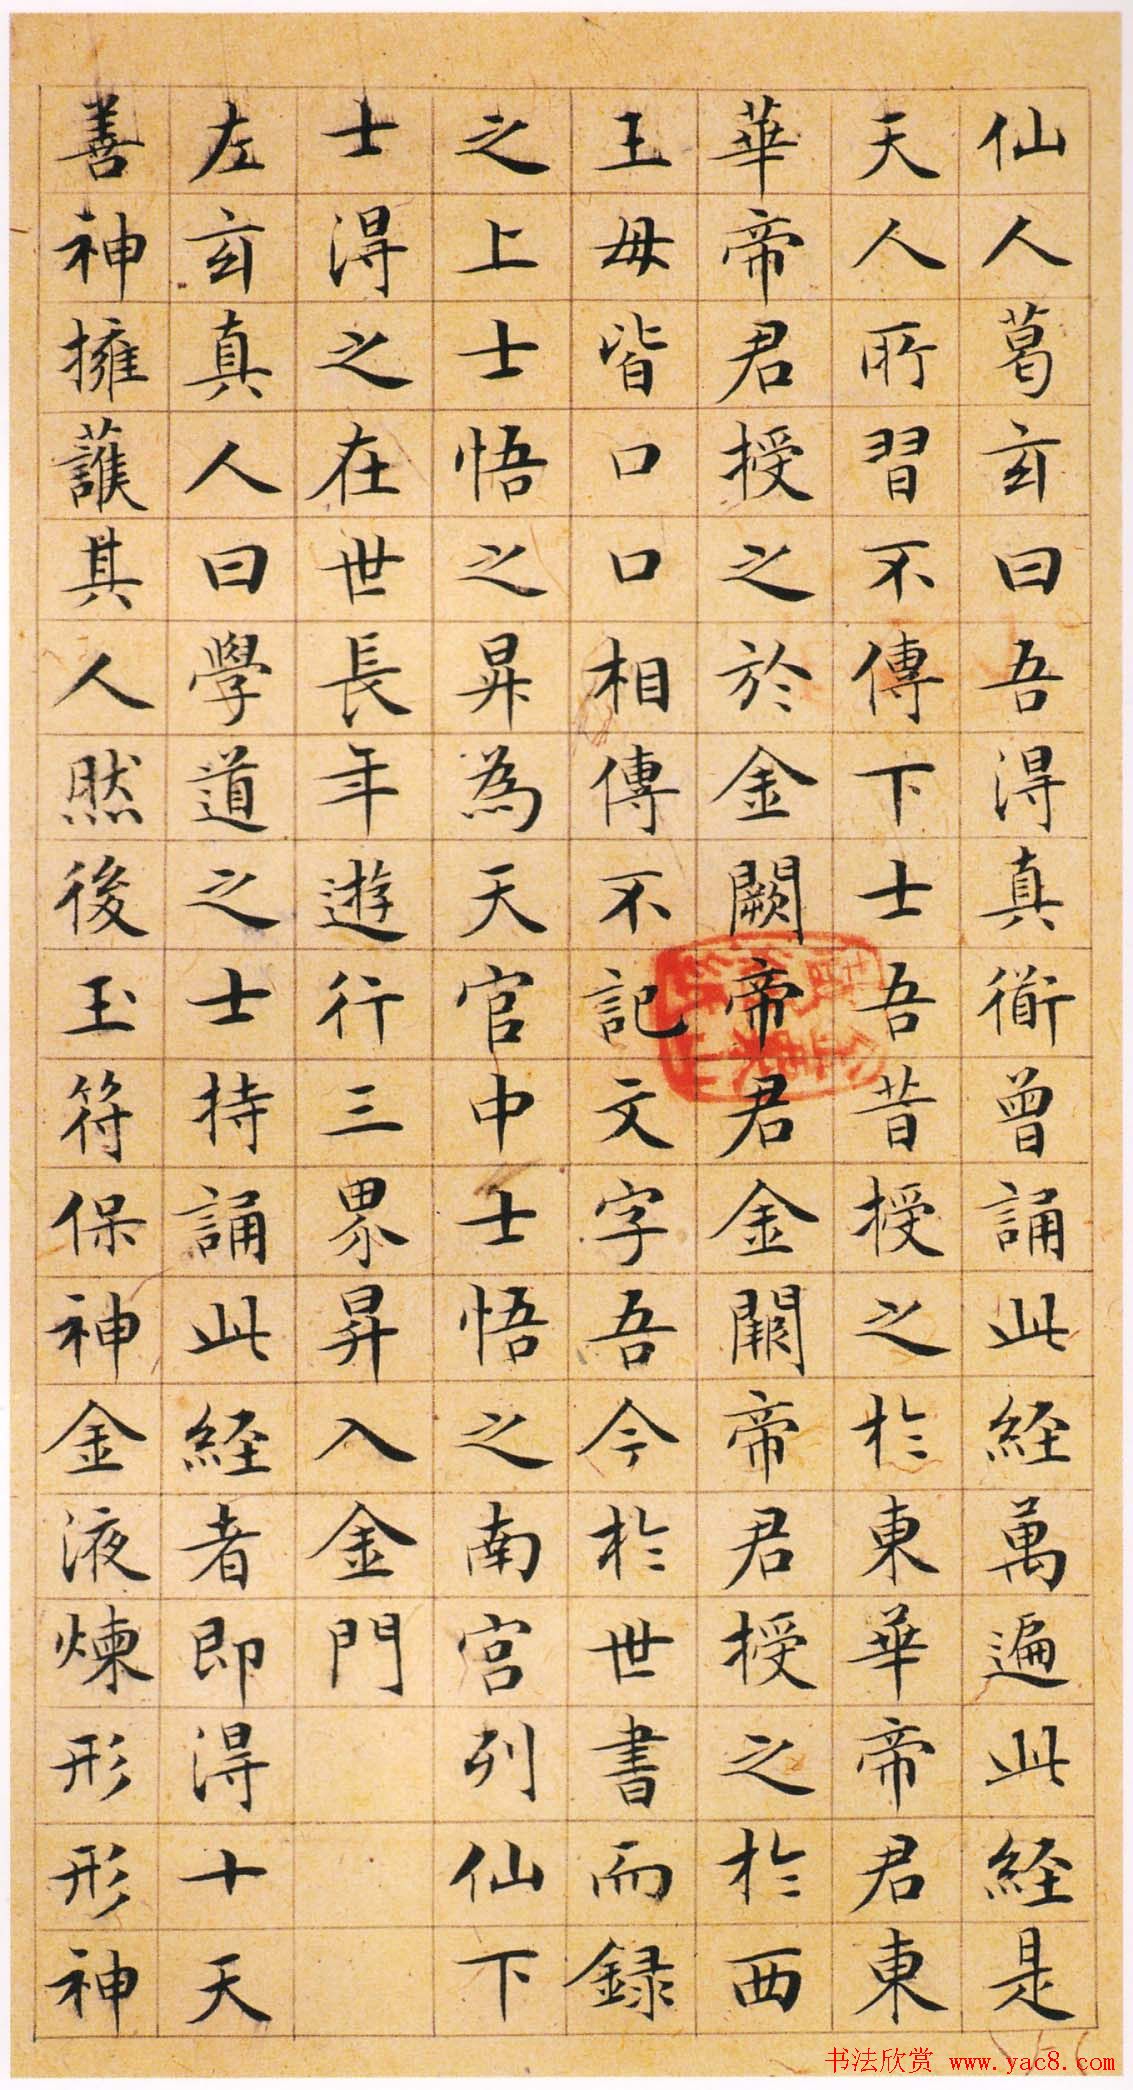 仙人葛玄曰吾得真衜曾誦此經萬遍此經是
天人所習不傳下士吾昔授之於東華帝君東
華帝君授之於金闕帝君金闕帝君授之於西
王母皆口口相傳不記文字吾今於世書而錄
之上士悟之昇為天官中士悟之南宮列仙下
士得之在世長年遊行三界昇入金門
左玄真人曰學道之士持誦此經者即得十天
善神擁護其人然後玉符保神金液煉形形神
书法欣赏 www.yac8.com